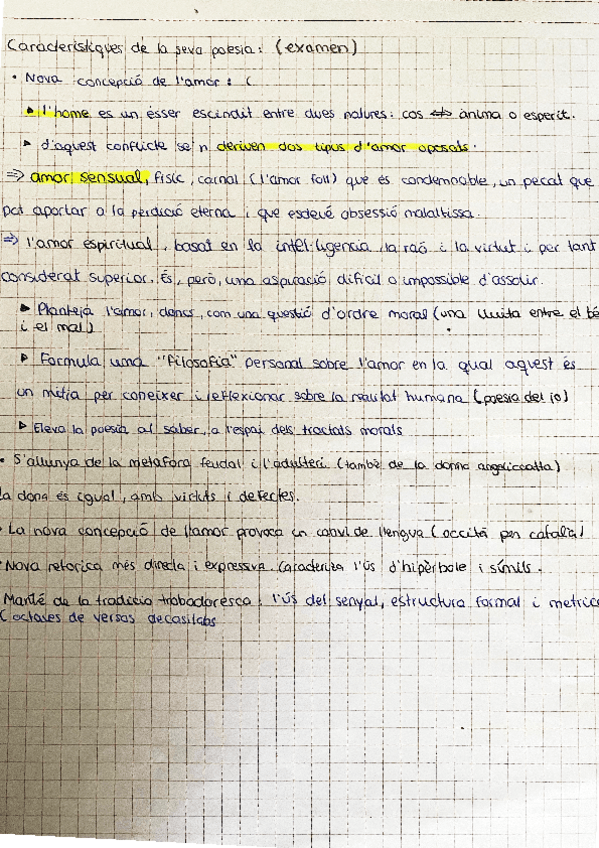 Característiques de la seva poesia: (examen)
• Nova concepció de l'amor: (
▸ l'home es un ésser escindit entre dues natures: cos <=> ànima o esperit.
▸ d'aquest conflicte se'n deriven dos tipus d'amor oposats.
=> amor sensual, físic, carnal (l'amor foll) que és condemnable, un pecat que
pot aportar a la perdició eterna i que esdevé obsessió malaltissa.
=> l'amor espiritual, basat en la intel·ligencia, la raó i la virtut i per tant
considerat superior. És, però, una aspiració difícil o impossible d'assolir.
▸ Planteja l'amor, doncs, com una questió d'ordre moral (una lluita entre el bé
i el mal)
▸ Formula una "filosofia" personal sobre l'amor en la qual aquest és
un mitja per coneixer i reflexionar sobre la realitat humana (poesia del jo)
▸ Eleva la poesia al saber, a l'espai dels tractats morals
• S'allunya de la metafora feudal i l'adulteri (també de la donna angelicatta)
la dona és igual, amb virtuts i defectes.
• La nova concepció de l'amor provoca un canvi de llengua (occità per català)
• Nova retorica més directa i expressiva. Caracteriza l'ús d'hipèrbole i símils.
Manté de la tradicio trobadoresca: l'ús del senyal, estructura formal i metrica
(octaves de versos decasilabs